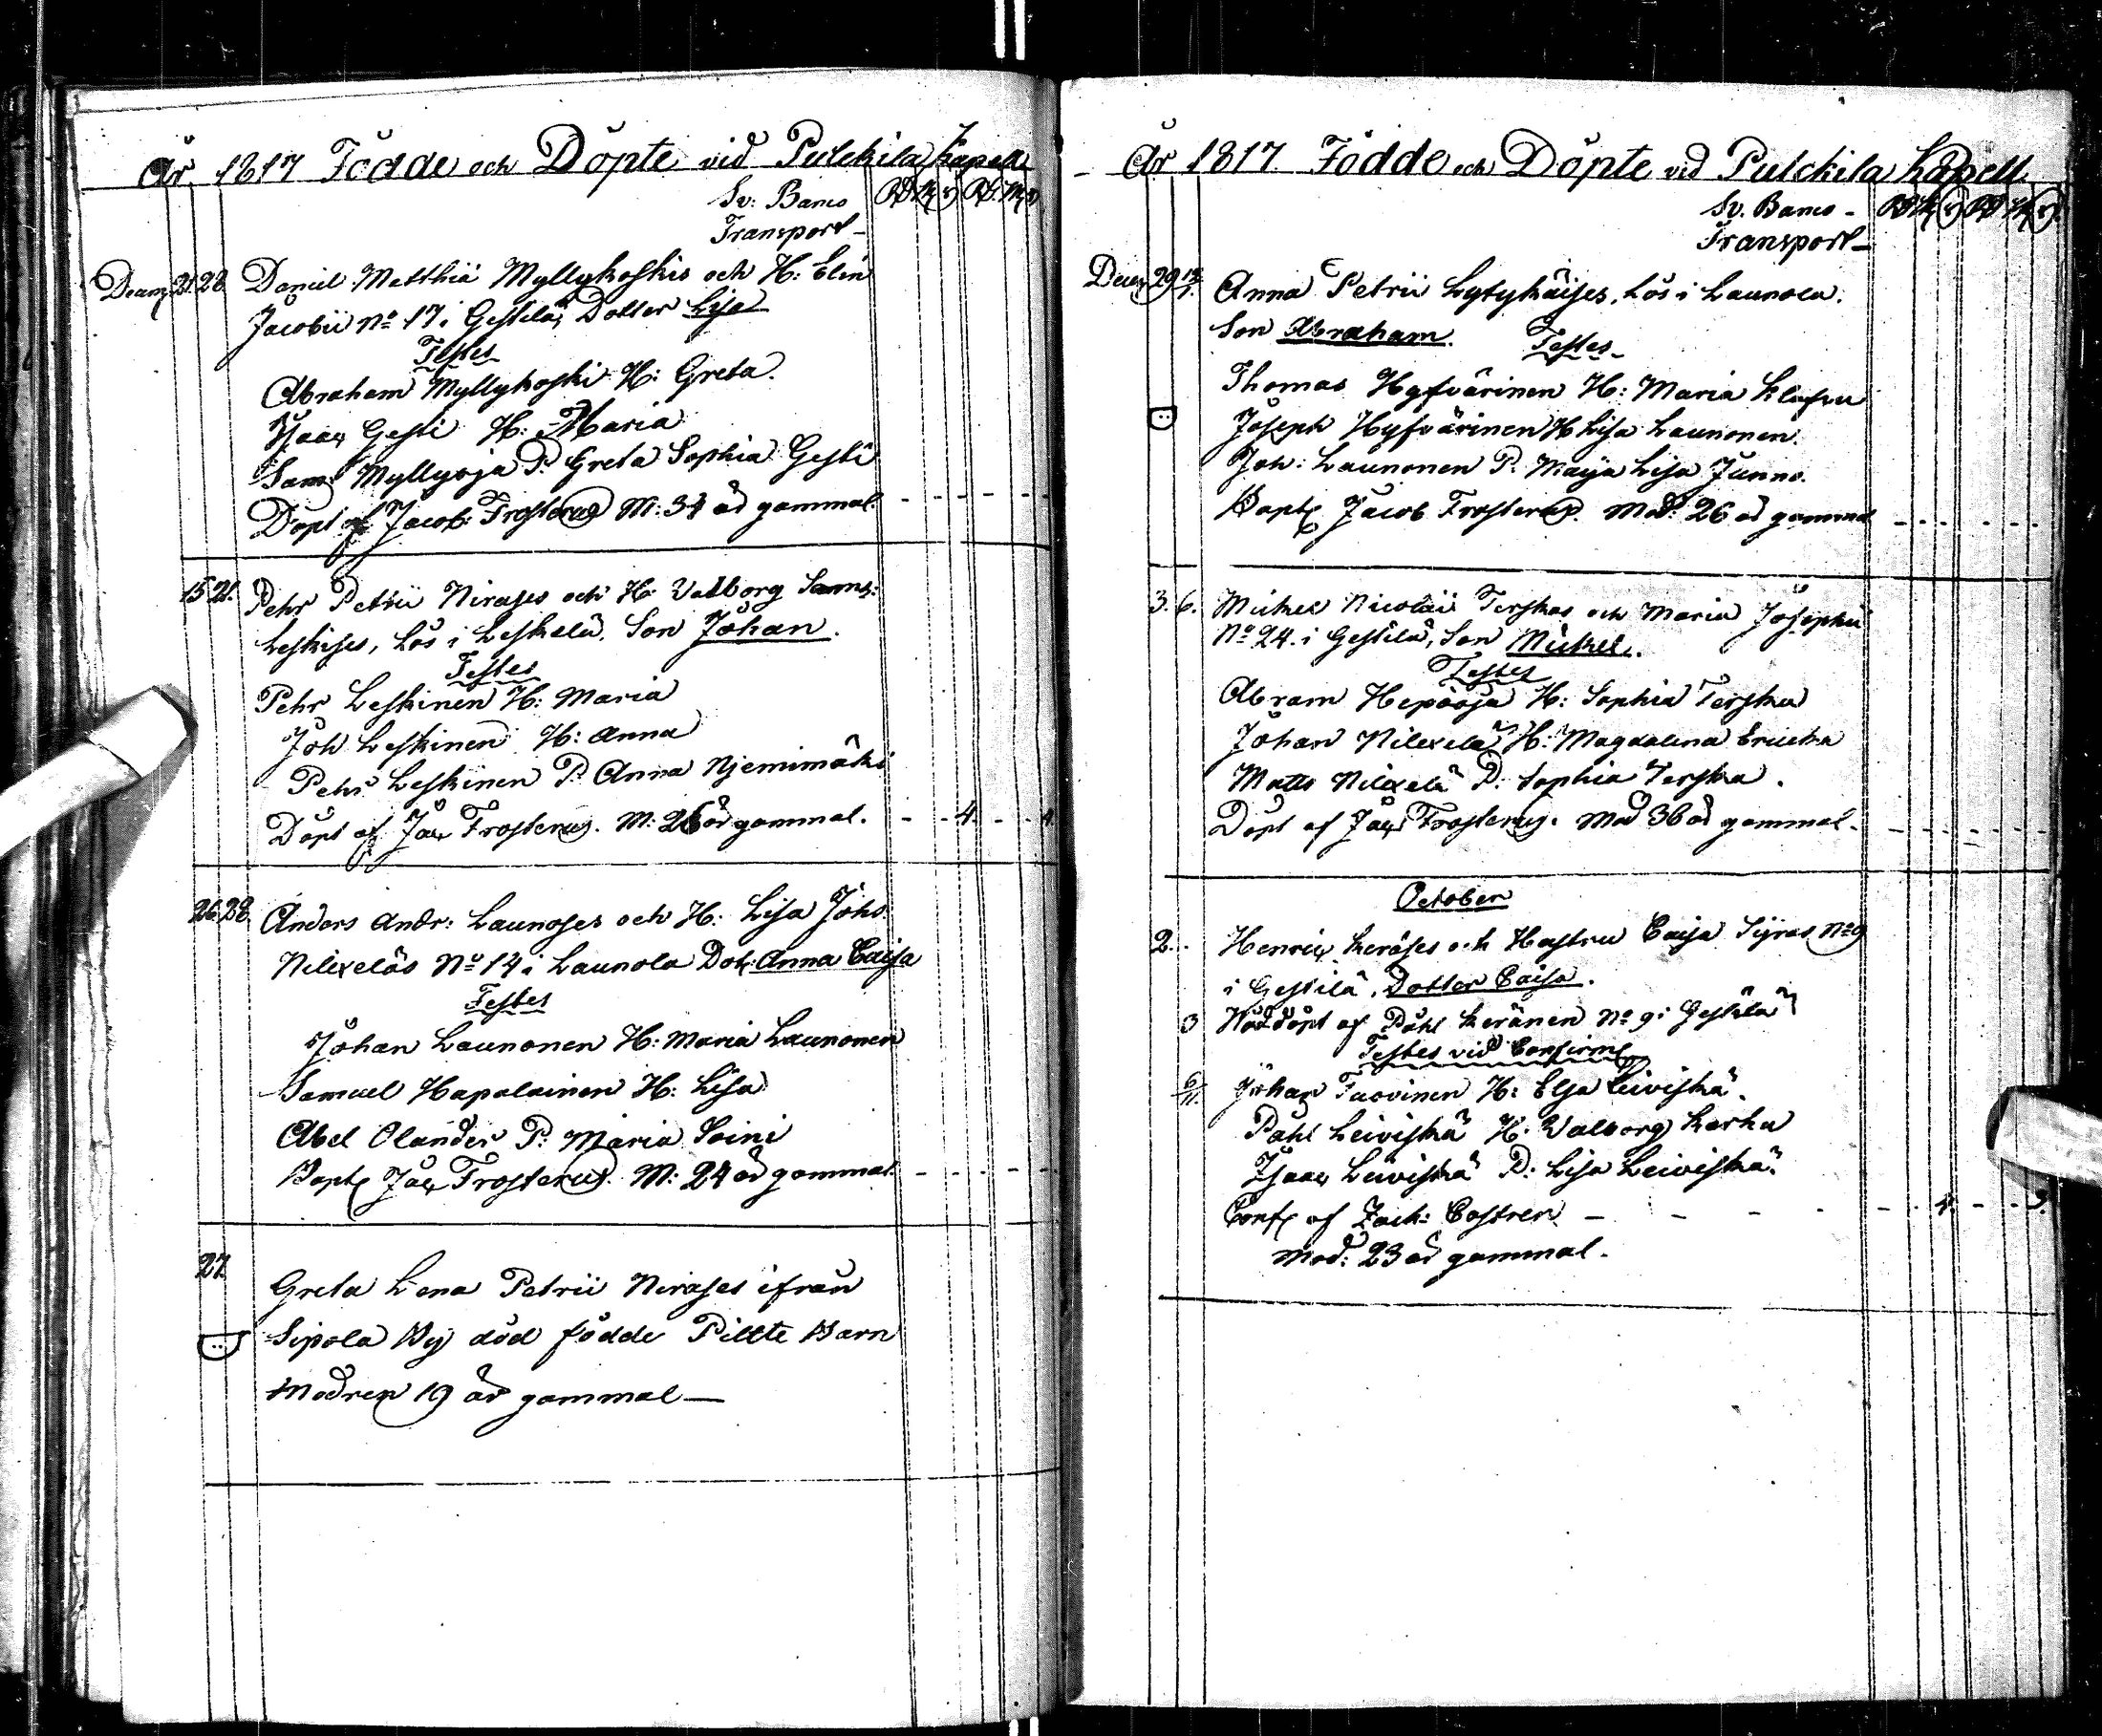 År 1817 Födde och Döpte vid Pulckila Kapell
Sv: Banco
Transport
21. 28. Daniel Matthiæ Myllykoskis och H: Elin
Jacobii No 17 i Gestilä, Dotter Lisa
Testes
Abraham Myllykoski H: Greta.
Isaac Gesti H: Maria
Sam: Myllyoja P. Greta Sophia Gesti
Döpt af Jacob Frosterus M: 34 år gammal.
15 21. Pehr Petrii Nirases och H: Valborg Sam:
Leskises, Lös i Leskelä, Son Johan.
Testes
Pehr Leskinen H: Maria
Joh Leskinen H: Anna
Pehr Leskinen P. Anna Njemimäki
Döpt af Jac Frosterus. M: 26 år gammal. - - 4. - - 4.
26. 28. Anders Andr: Launoses och H: Lisa Johs:
Nilexeläs No 14 i Launola Dotr: Anna Caisa
Testes
Johan Launonen H: Maria Launonen
Samuel Hapalainen H: Lisa
Abel Olander P: Maria Soini
Bapt Jac Frosterus. M: 24 år gammal
27. Greta Lena Petrii Nirases ifrån
Sipola By död födde Piltte Barn
Modren 19 år gammal—
År 1817 Födde och Döpte vid Pulckila Kapell
Sv. Banco -
Transport
29 Anna Petrii Lytykäises, Lös i Launola.
Son Abraham. Testes
Thomas Hyfvärinen H: Maria
Joseph Hyfvärinen H Lisa Launonen.
Joh: Launonen P. Maija Lisa Junno.
Bapt Jacob Frosterus. Mod: 26 år gammal
3. 6. Mickel Nicolai Terskas och Maria Josephii
No 24. i Gestilä, Son Mickel.
Testes
Abram Hepooja H: Sophia Terska
Johan Nilexelä H: Magdalena
Matts Nilexelä P: Sophia Terska.
Döpt af Jac Frosterus. Mod 36 år gammal.
October
2. Henric Keräses och Hustru Caisa No 9
i Gestilä, Dotter Caisa.
3 Nöddöpt af Påhl Keränen No 9 i Gestilä
Testes vid Confirm
6/11. Johan Tuovinen H: Elsa Leiviskä.
Påhl Leiviskä H: Valborg Karhu
Isaac Leiviskä P: Lisa Leiviskä.
Conf af Zach: Castren - - - - - 4. - -
Mod: 23 år gammal.